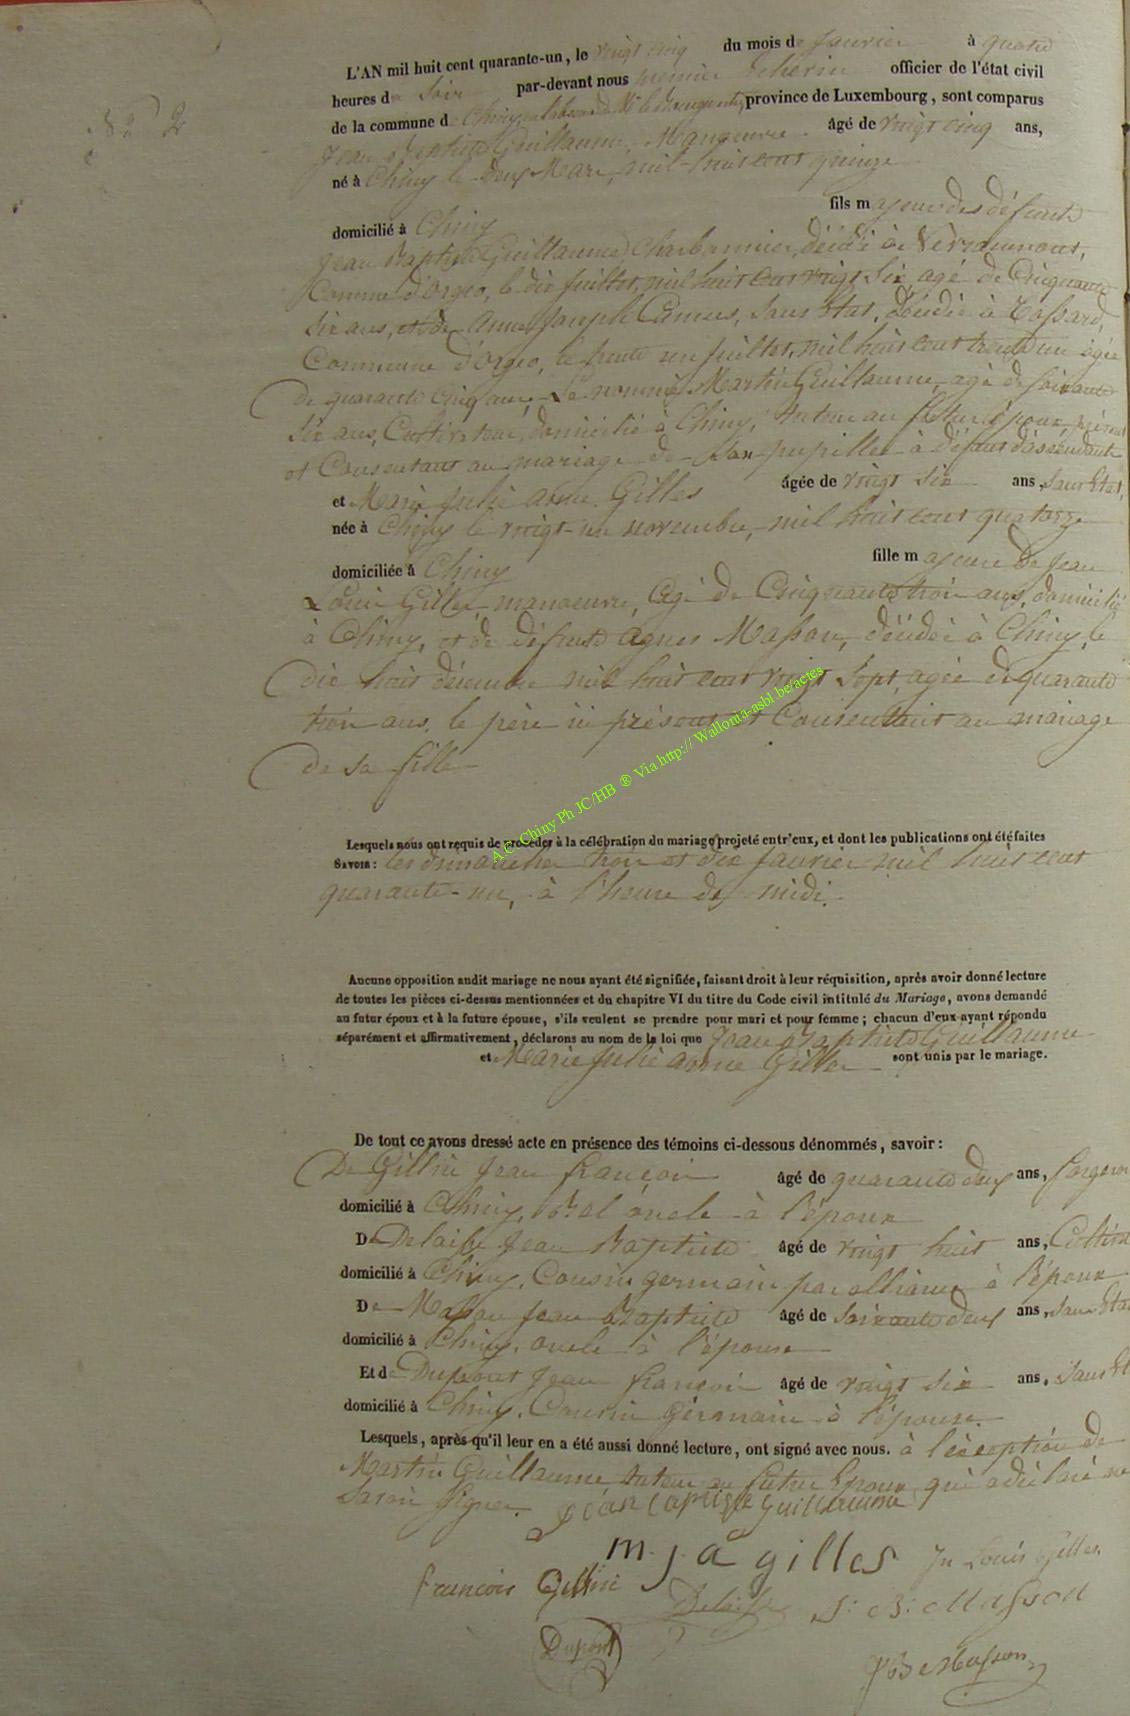 N° 2
L'AN mil huit cent quarante-un, le vingt cinq du mois de janvier à quatre
heures du soir par-devant nous premier échevin officier de l'état civil
de la commune de Chiny, province de Luxembourg, sont comparus
Jean Baptiste Guillaume, Manoeuvre âgé de vingt cinq ans,
né à Chiny le deux Mars, mil-huit cent quinze
domicilié à Chiny fils majeur des défunts
Jean Baptiste Guillaume, Charbonnier, décédé à
Comme d'Orgeo, le dix juillet, mil huit cent vingt six, agé de Cinquante
six ans, et de Anne Joseph Camus, Sans Etat, décédée à
Commune d'Orgeo, le trente un juillet, mil huit cent trente un agée
de quarante Cinq ans, Le nommé Martin Guillaume, agé de soixante
six ans, Cultivateur, domicilié à Chiny, tuteur au futur époux, présent
et Consentant au mariage de Son pupille à défaut d'ascendants
et Marie Julie anne Gilles âgée de vingt six ans, Sans Etat,
née à Chiny le vingt-un novembre, mil huit cent quatorze
domiciliée à Chiny fille majeure de Jean
Louis Gilles, manoeuvre, agé de Cinquante trois ans, domicilié
à Chiny, et de défunte Agnes Masson, décédée à Chiny, le
dix huit décembre mil huit cent vingt sept, agée de quarante
trois ans. le père ici présent et Consentant au mariage
de sa fille
A.C. Chiny Ph JC/HB ® Via http:// Wallonia-asbl.be/actes
Lesquels nous ont requis de procéder à la célébration du mariage projeté entr'eux, et dont les publications ont été faites
SAVOIR : les dimanches trois et dix janvier mil huit cent
quarante-un, à l'heure de midi.
Aucune opposition audit mariage ne nous ayant été signifiée, faisant droit à leur réquisition, après avoir donné lecture
de toutes les pièces ci-dessus mentionnées et du chapitre VI du titre du Code civil intitulé du Mariage, avons demandé
au futur époux et à la future épouse, s'ils veulent se prendre pour mari et pour femme ; chacun d'eux ayant répondu
séparément et affirmativement, déclarons au nom de la loi que Jean Baptiste Guillaume
et Marie Julie anne Gilles sont unis par le mariage.
De tout ce avons dressé acte en présence des témoins ci-dessous dénommés, savoir :
De Jean françois âgé de quarante deux ans, forgeron
domicilié à Chiny, oncle à l'époux
De Jean Baptiste âgé de vingt huit ans,
domicilié à Chiny, Cousin germain par alliance à l'époux
De Masson Jean Baptiste âgé de soixante deux ans, sans Etat
domicilié à Chiny, oncle à l'épouse
Et de Dupont Jean françois âgé de vingt six ans, sans
domicilié à Chiny, Cousin germain à l'épouse
Lesquels, après qu'il leur en a été aussi donné lecture, ont signé avec nous. à l'exception de
Martin Guillaume tuteur au futur Epoux qui a déclaré ne
savoir signer. Jean Baptiste Guillaume
m. j. a gilles Jn Louis Gilles.
francois J: B: Masson
Dupont
JB Masson